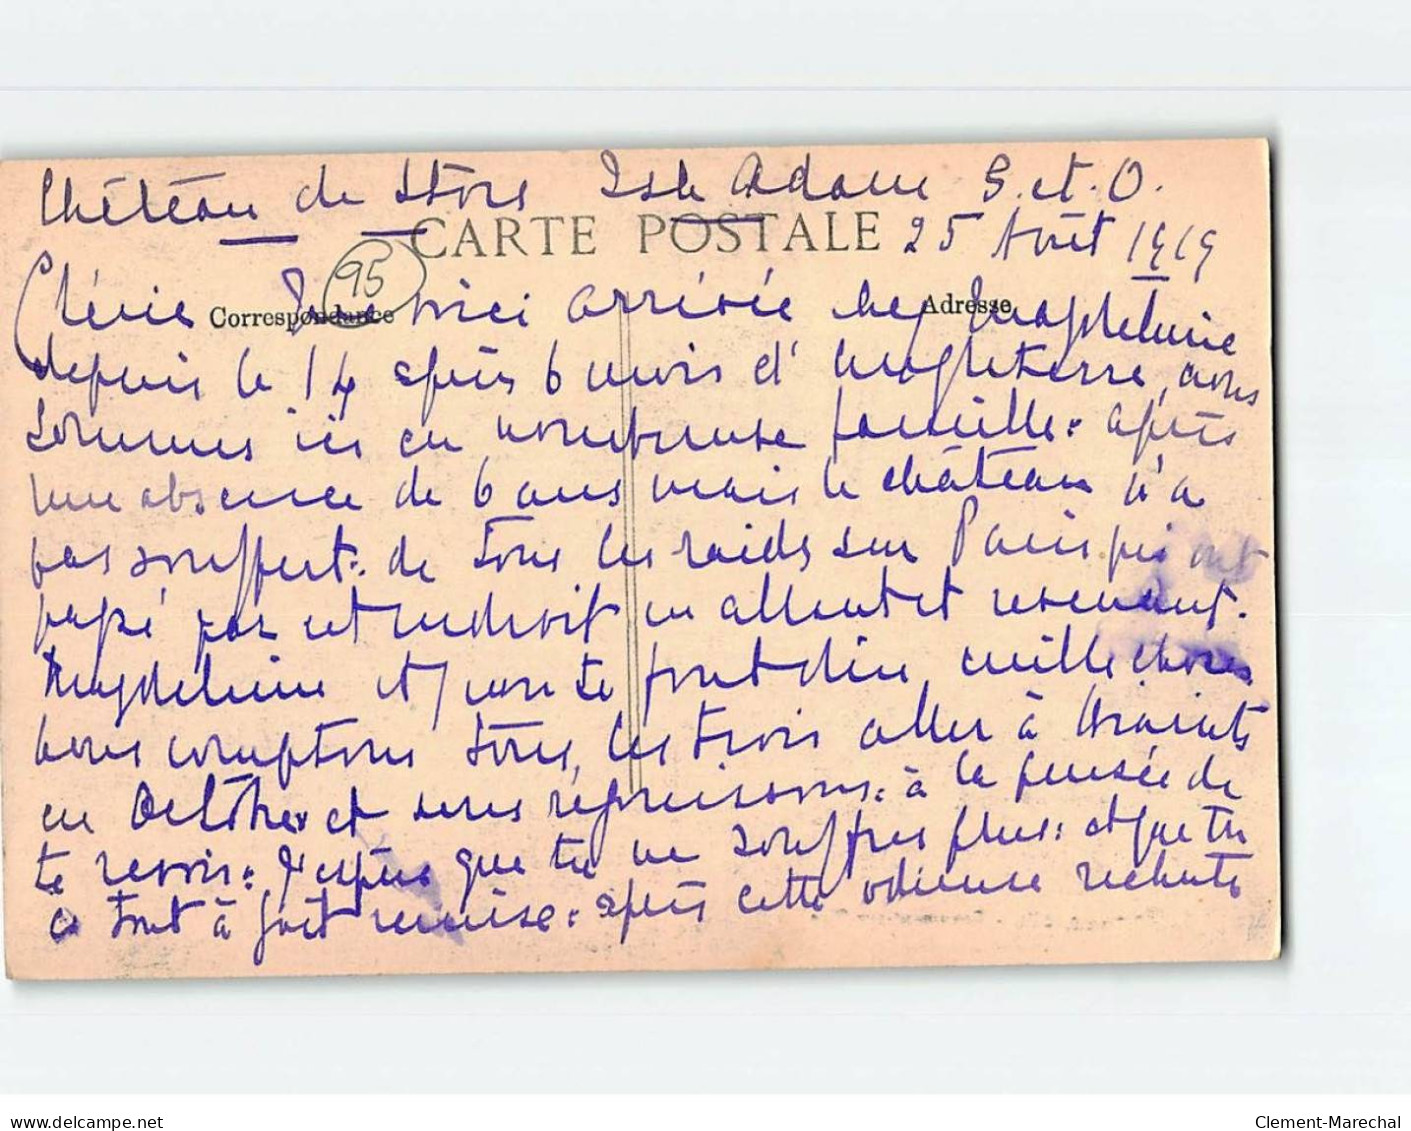 Château de Stors Isle Adam S. et. O.
CARTE POSTALE 25 Août 1919
95
Correspondance Adresse
Chérie me voici arrivée chez Magdeleine
depuis le 14 après 6 mois d'Angleterre, nous
sommes ici en nombreuse famille : après
une absence de 6 ans mais le château n'a
pas souffert : de tous les raids sur Paris qui ont
passé par cet endroit en allant et revenant.
Magdeleine et te font dire mille choses
nous comptons tous, les trois aller à
en Octobre et nous réjouissons : à la pensée de
te revoir : J'espère que tu ne souffres plus : et que tu
es tout à fait remise : après cette odieuse rechute
delcampe.net
Clement-Marechal